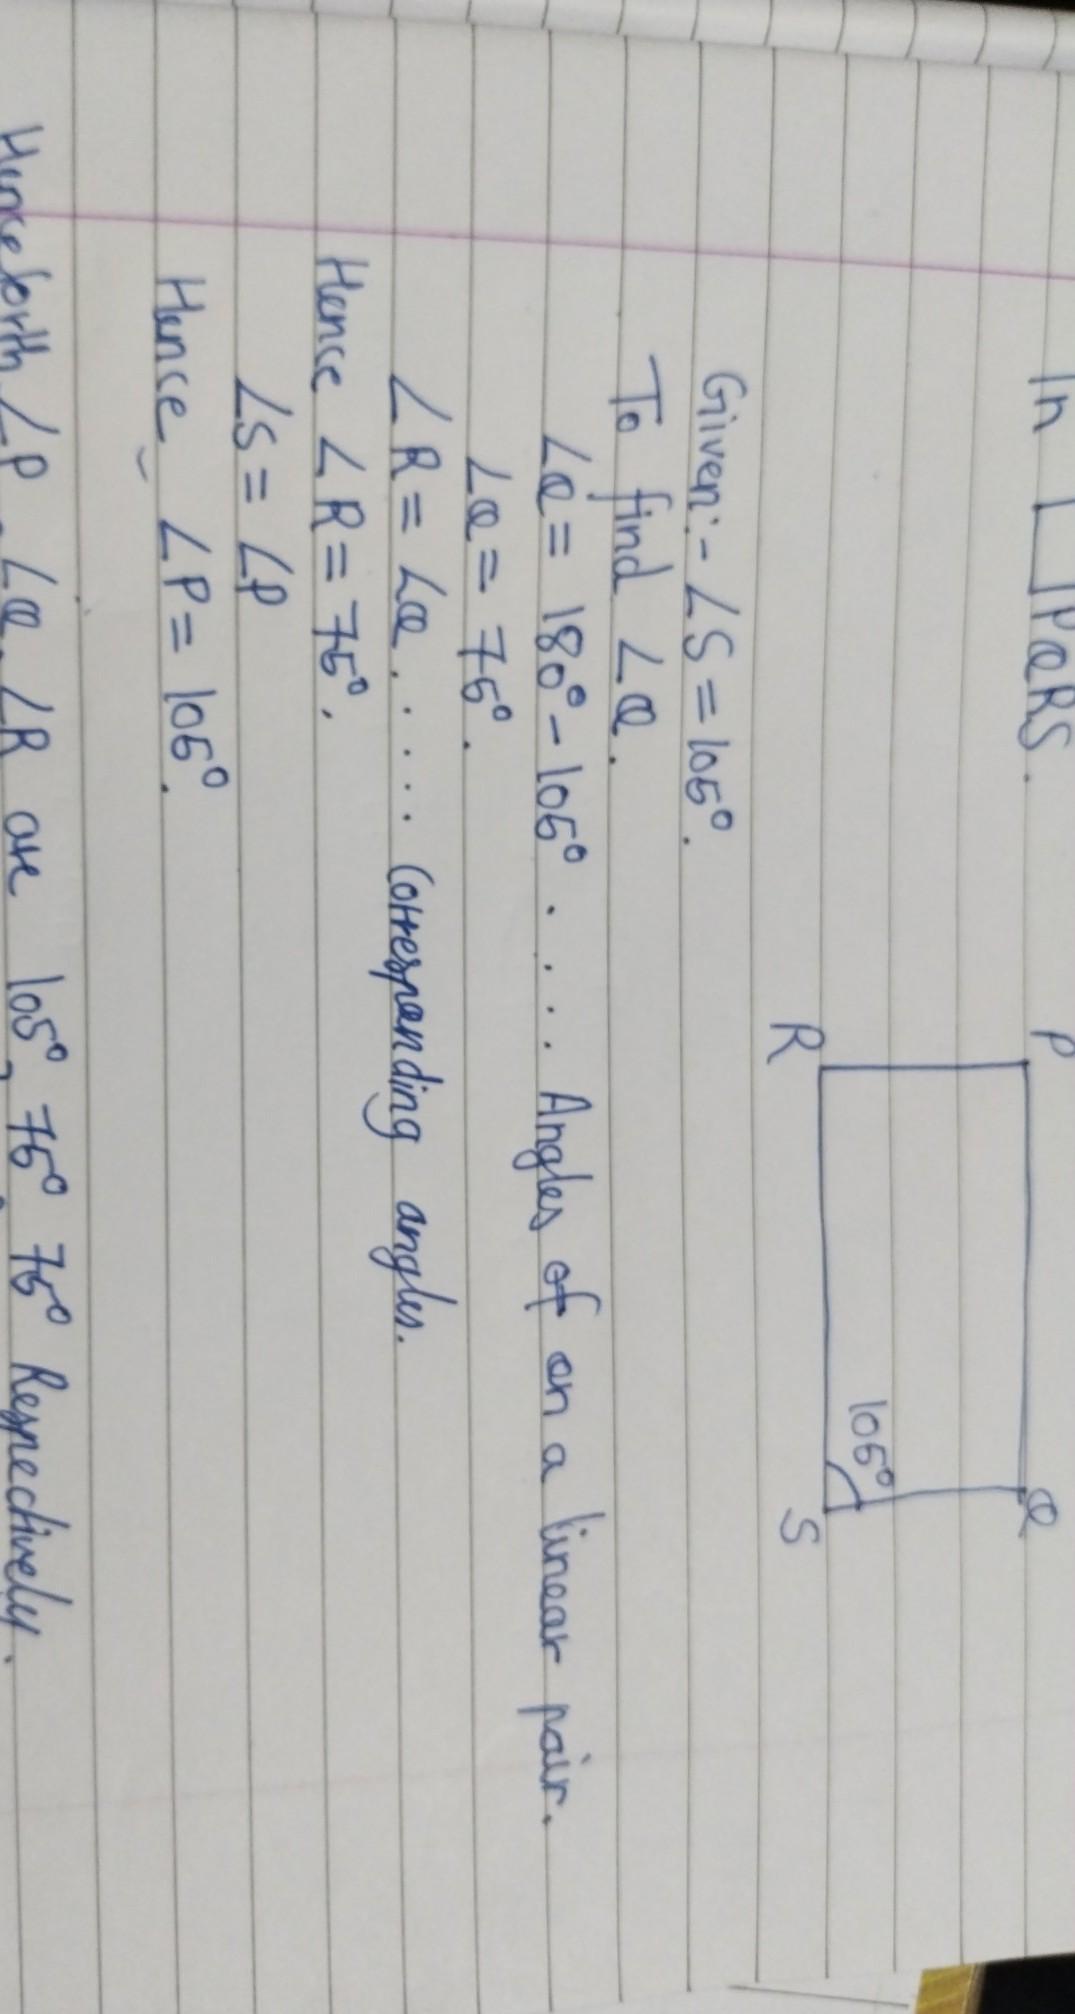 In PQRS.
P
Q
105°
R
S
Given:- ∠S = 105°.
To find ∠Q.
∠Q = 180° - 105° .... Angles of on a linear pair.
∠Q = 75°.
∠R = ∠Q ..... Corresponding angles.
Hence ∠R = 75°.
∠S = ∠P
Hence ∠P = 105°.
Henceforth ∠P, ∠Q, ∠R are 105°, 75°, 75° Respectively.